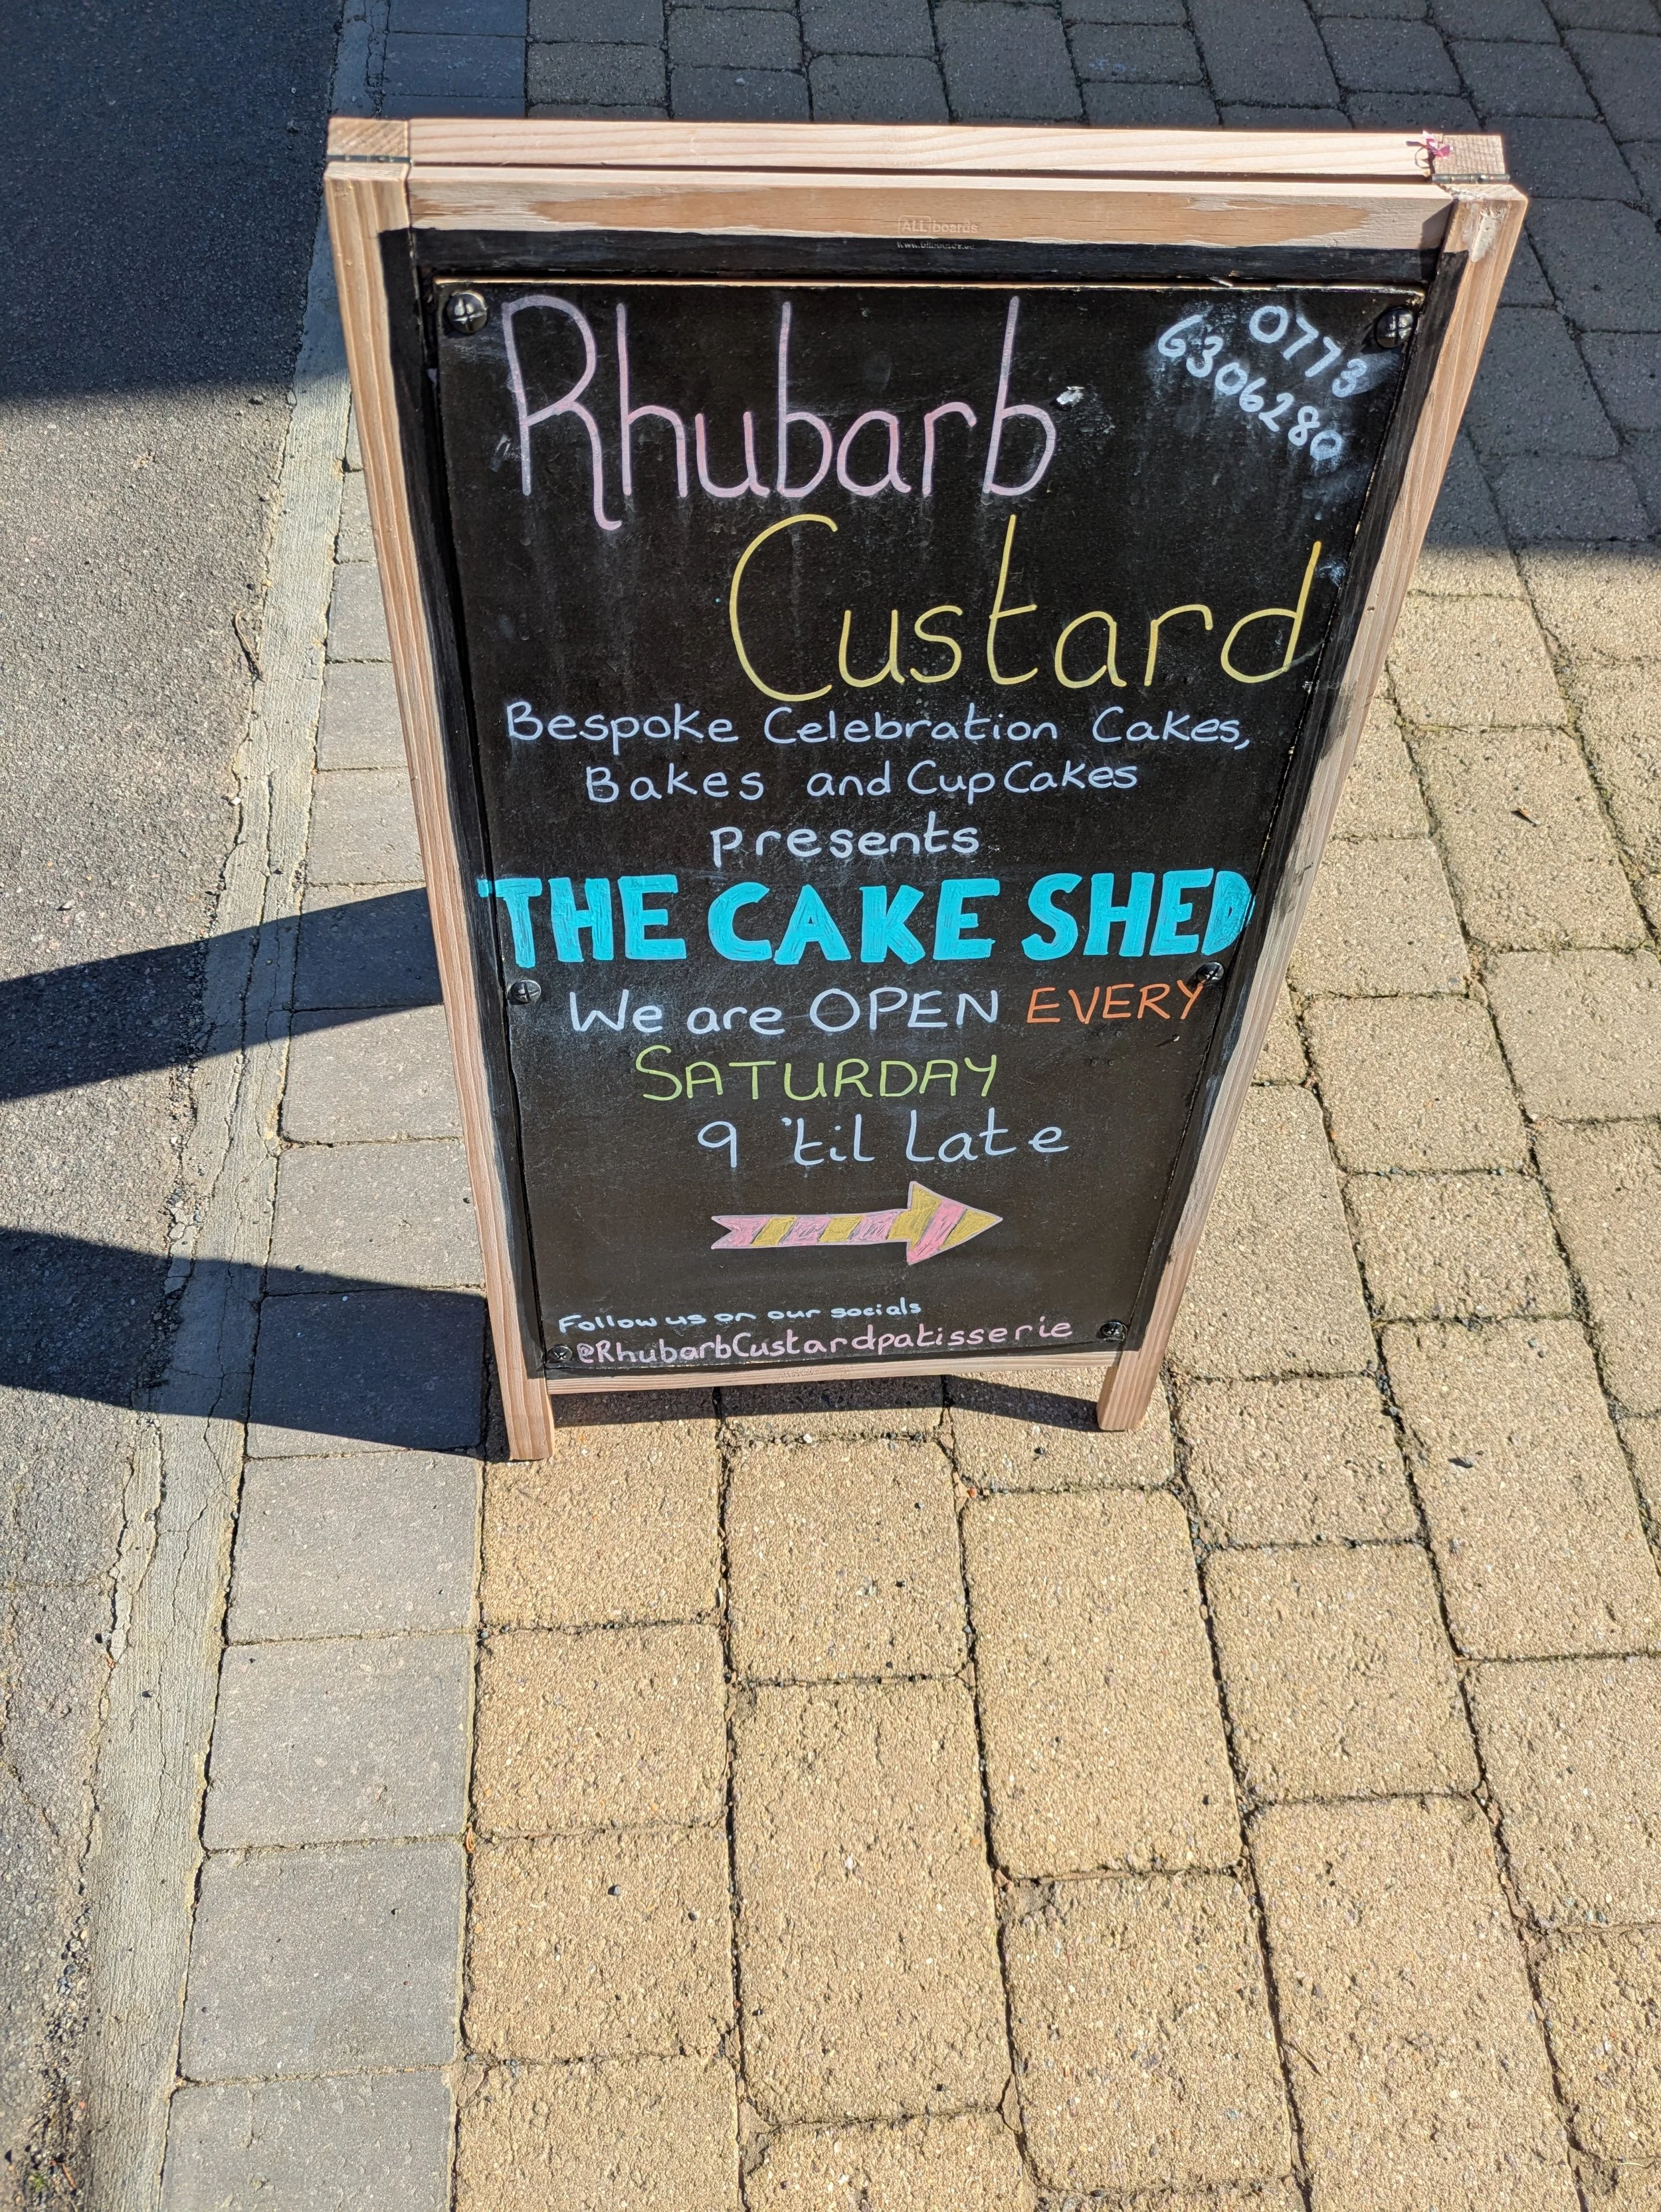 ALLboards
Rhubarb
0773
6306280
Custard
Bespoke Celebration Cakes,
Bakes and CupCakes
presents
THE CAKE SHED
We are OPEN EVERY
SATURDAY
9 'til Late
Follow us on our socials
@RhubarbCustardpatisserie